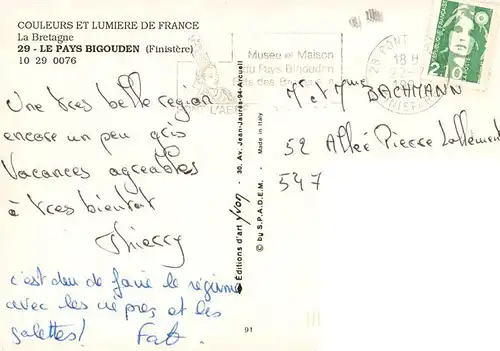 COULEURS ET LUMIERE DE FRANCE
La Bretagne
29 - LE PAYS BIGOUDEN (Finistère)
10 29 0076
Une très belle région
encore un peu gris
Vacances agréables
à très bientôt
Thierry
c'est dur de faire le régime
avec les crêpes et les
galettes!
91
Editions d'art yvon - 30, Av. Jean-Jaurès-94-Arcueil
© by S.P.A.D.E.M. - Made in Italy
Musée et Maison
du Pays Bigouden
des
29 PONT
18 H
FINIST
2,10
Mr et Mme BACHMANN
52 Allée Pierre Lallement
547